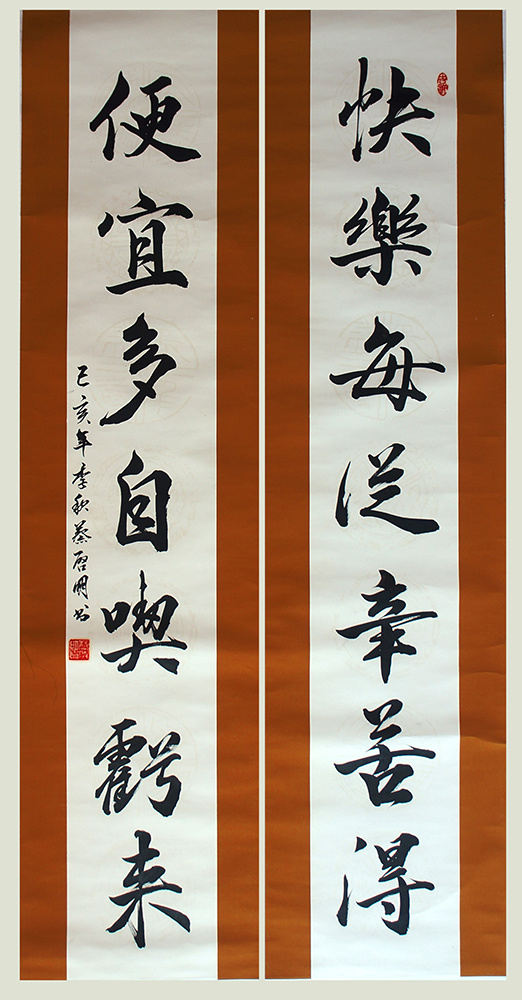 快樂每從辛苦得
便宜多自喫虧来
己亥年季秋蔡啓明书